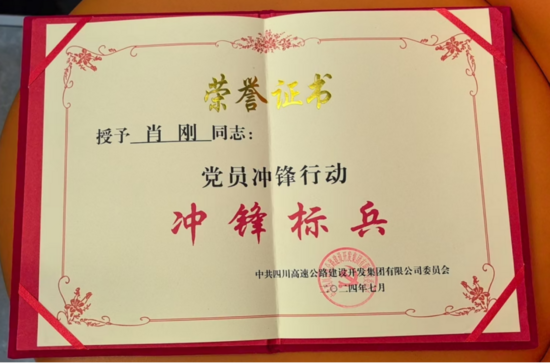 荣誉证书
授予 肖 刚 同志：
党员冲锋行动
冲锋标兵
中共四川高速公路建设开发集团有限公司委员会
二〇二四年七月